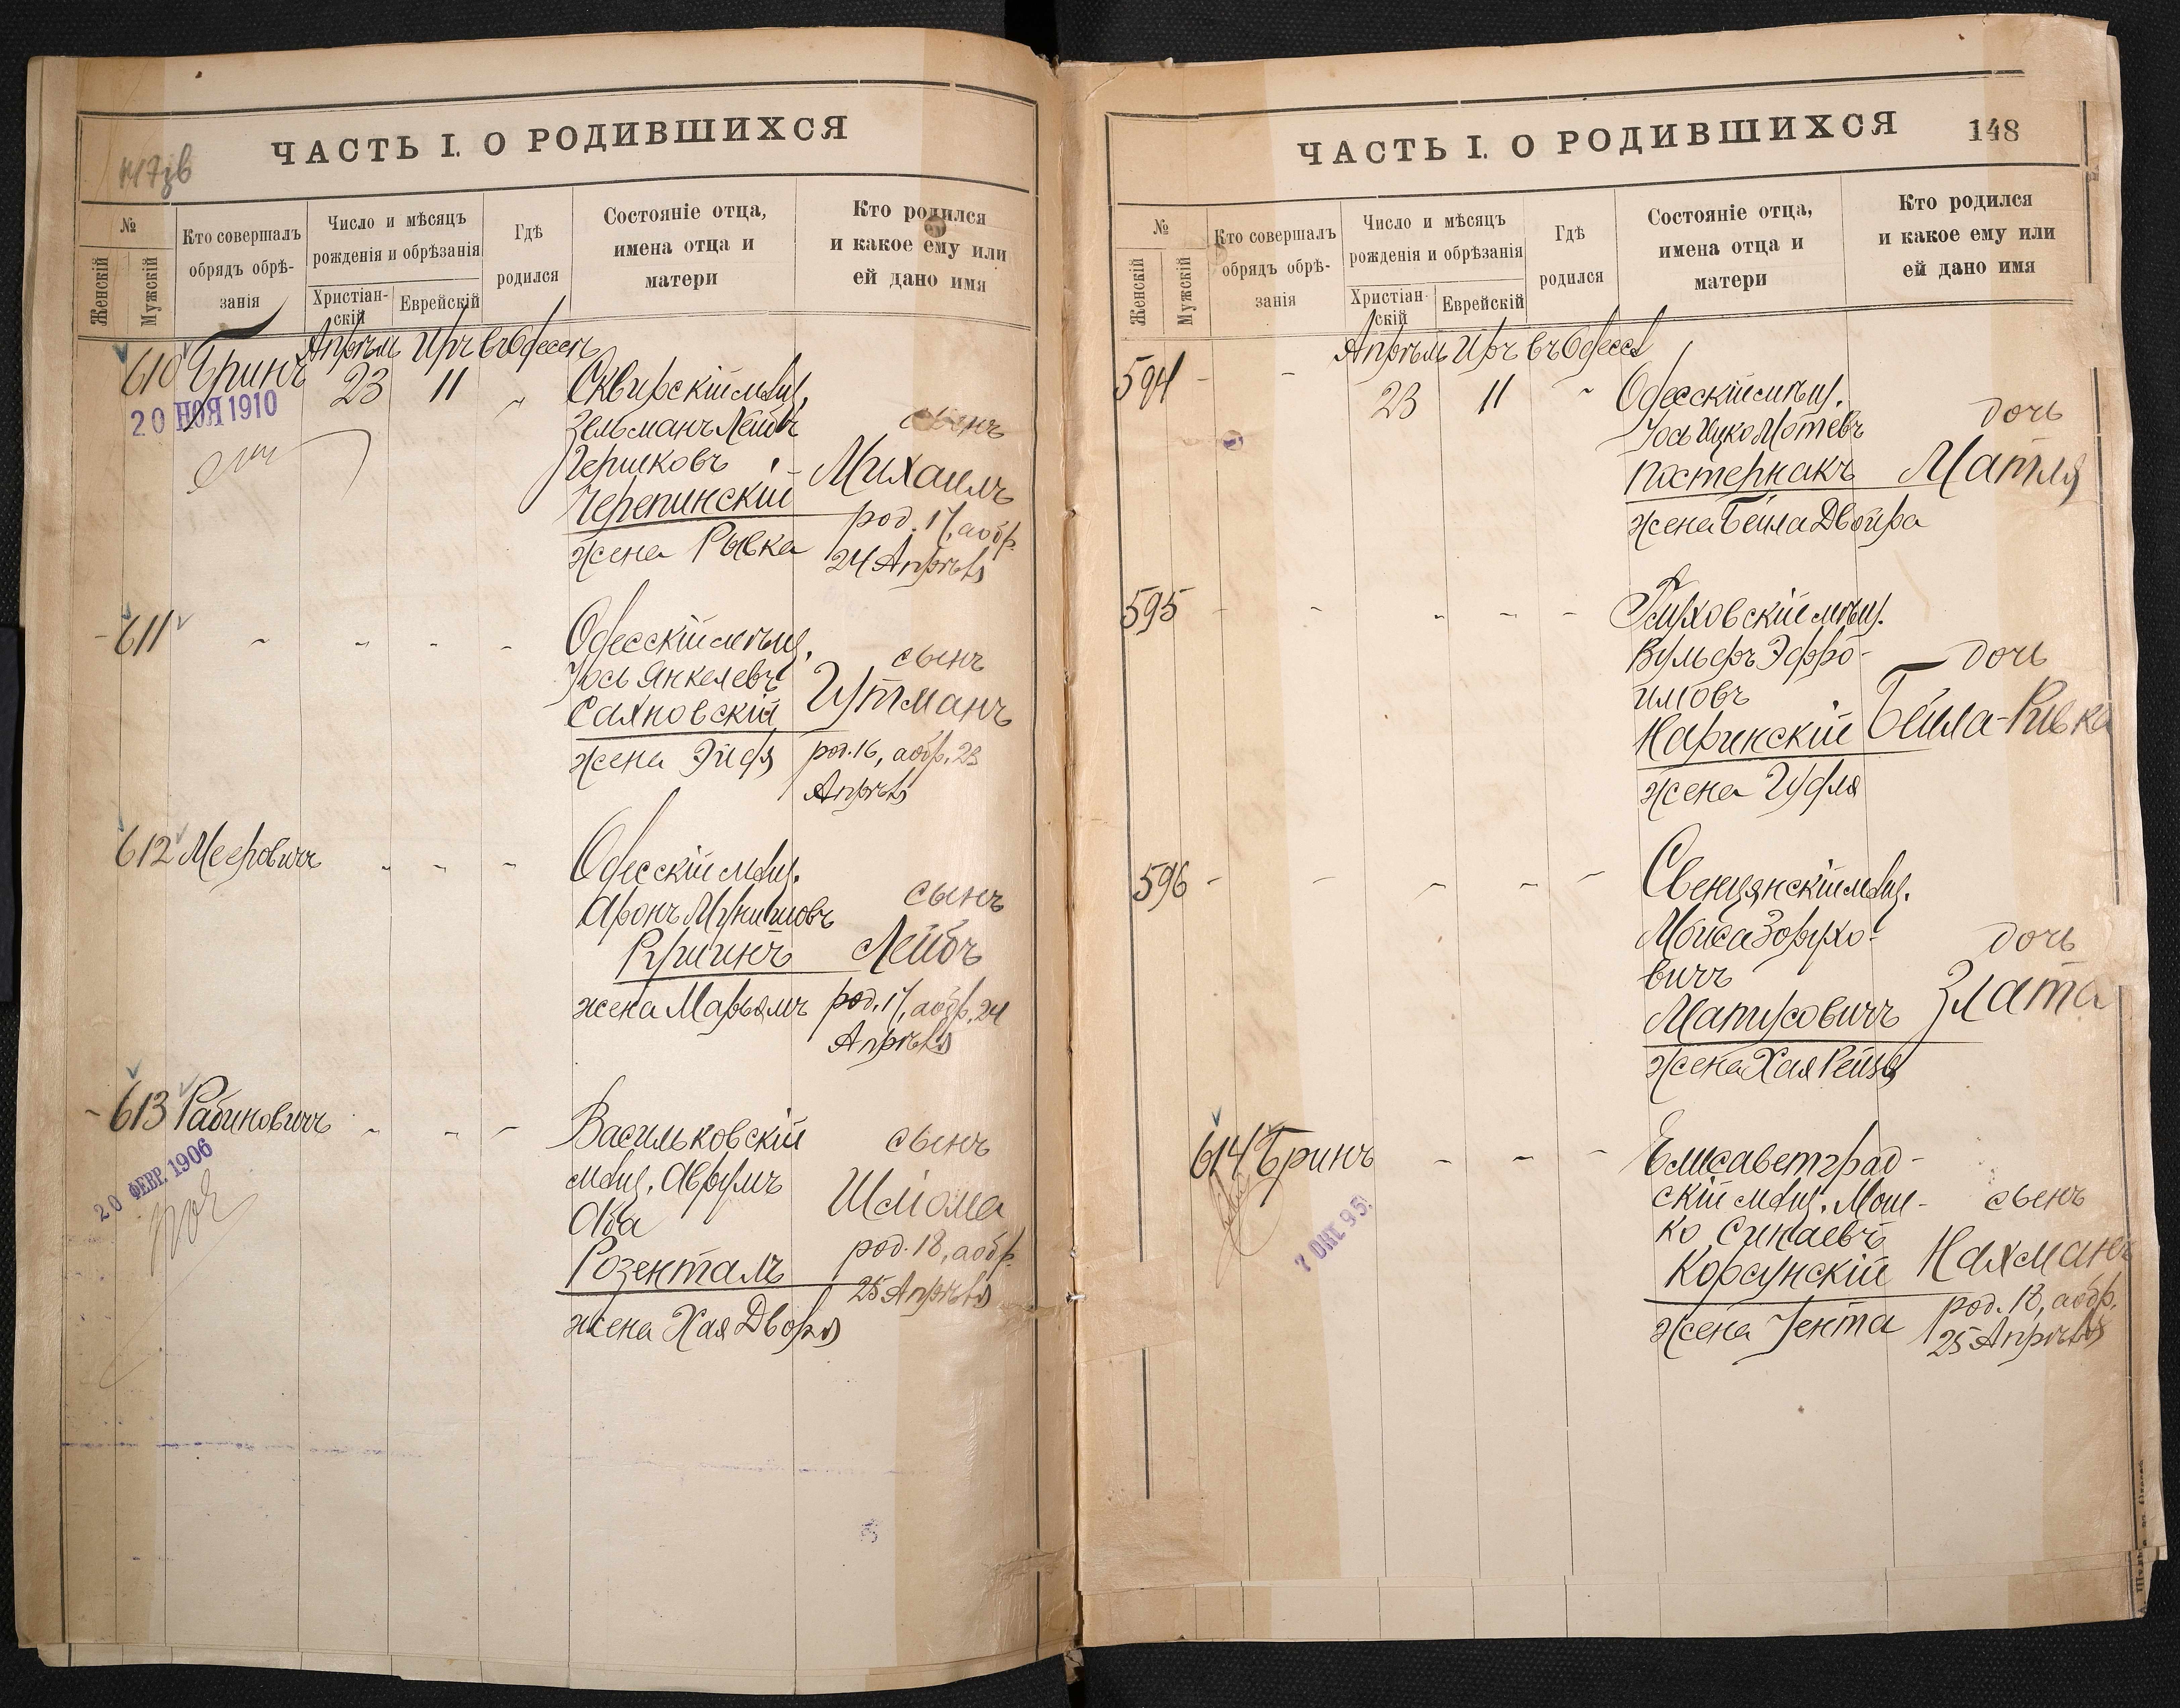 ЧАСТЬ I. О РОДИВШИХСЯ
№
Женскій
Мужскій
Кто совершалъ
обрядъ обрѣ-
занія
Число и мѣсяцъ
рожденія и обрѣзанія
Христіан-
скій
Еврейскій
Гдѣ
родился
Состояніе отца,
имена отца и
матери
Кто родился
и какое ему или
ей дано имя
Апрѣль Иръ въ Одессѣ
610 Бринъ 23 11 " Сквирскій мѣщ.
20 НОЯ 1910
Зельманъ Лейбъ
Гершковъ
Черепинскій
жена Рывка
сынъ
Михаилъ
род. 17, а обр.
24 Апрѣля
611 Одесскій мѣщ.
Іось Янкелевъ
Сахновскій
жена Эйдя
сынъ
Гутманъ
род. 16, а обр. 23
Апрѣля
612 Мееровичъ
Одесскій мѣщ.
Аронъ
жена Марьямъ
сынъ
Лейбъ
род. 17, а обр. 24
Апрѣля
613 Рабиновичъ
20 ФЕВР. 1906
Васильковскій
мѣщ. Аврумъ
Розенталь
жена Хая Двойра
сынъ
Шліома
род. 18, а обр.
25 Апрѣля
ЧАСТЬ I. О РОДИВШИХСЯ
148
№
Женскій
Мужскій
Кто совершалъ
обрядъ обрѣ-
занія
Число и мѣсяцъ
рожденія и обрѣзанія
Христіан-
скій
Еврейскій
Гдѣ
родился
Состояніе отца,
имена отца и
матери
Кто родился
и какое ему или
ей дано имя
Апрѣль Иръ въ Одессѣ
594 - - 23 11 " Одесскій мѣщ.
Іось Ицко Мотевъ
Пастернакъ
жена Бейла Двойра
дочь
Матля
595 Глуховскій мѣщ.
Вульфъ Эфро-
имовъ
Наринскій
жена
дочь
Бейла-Ривка
596 Свенцянскій мѣщ.
вичъ
Матусовичъ
жена Хая Рейзя
дочь
Злата
614 Бринъ
7 ОКТ. 95.
Елисаветград-
скій мѣщ. Мош-
ко Синаевъ
Корсунскій
жена Іента
сынъ
Нахманъ
род. 18, а обр.
25 Апрѣля